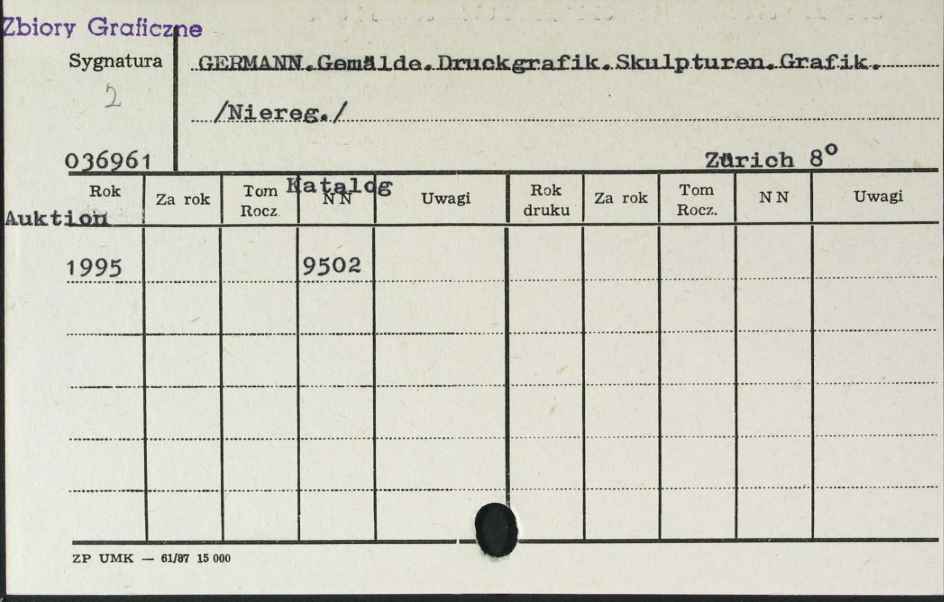 Zbiory Graficzne
Sygnatura
GERMANN.Gemälde.Druckgrafik.Skulpturen.Grafik.
2
/Niereg./
036961
Zürich 8°
Rok Za rok Tom Rocz. Katalog NN Uwagi Rok druku Za rok Tom Rocz. NN Uwagi
Auktion
1995 9502
ZP UMK — 61/87 15 000